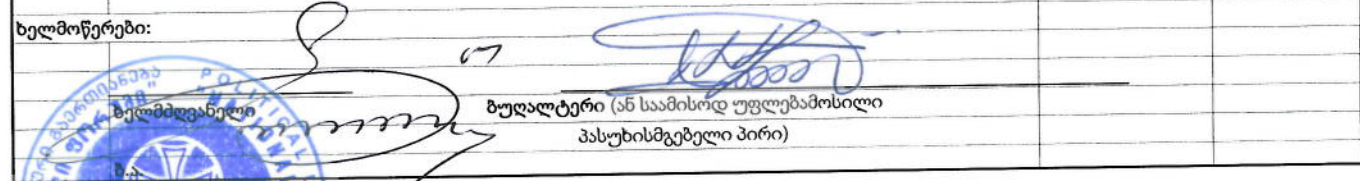 ხელმოწერები:
ხელმძღვანელი
ბუღალტერი (ან საამისოდ უფლებამოსილი
პასუხისმგებელი პირი)
ბ.ა.
POLITICAL
"NATIONAL